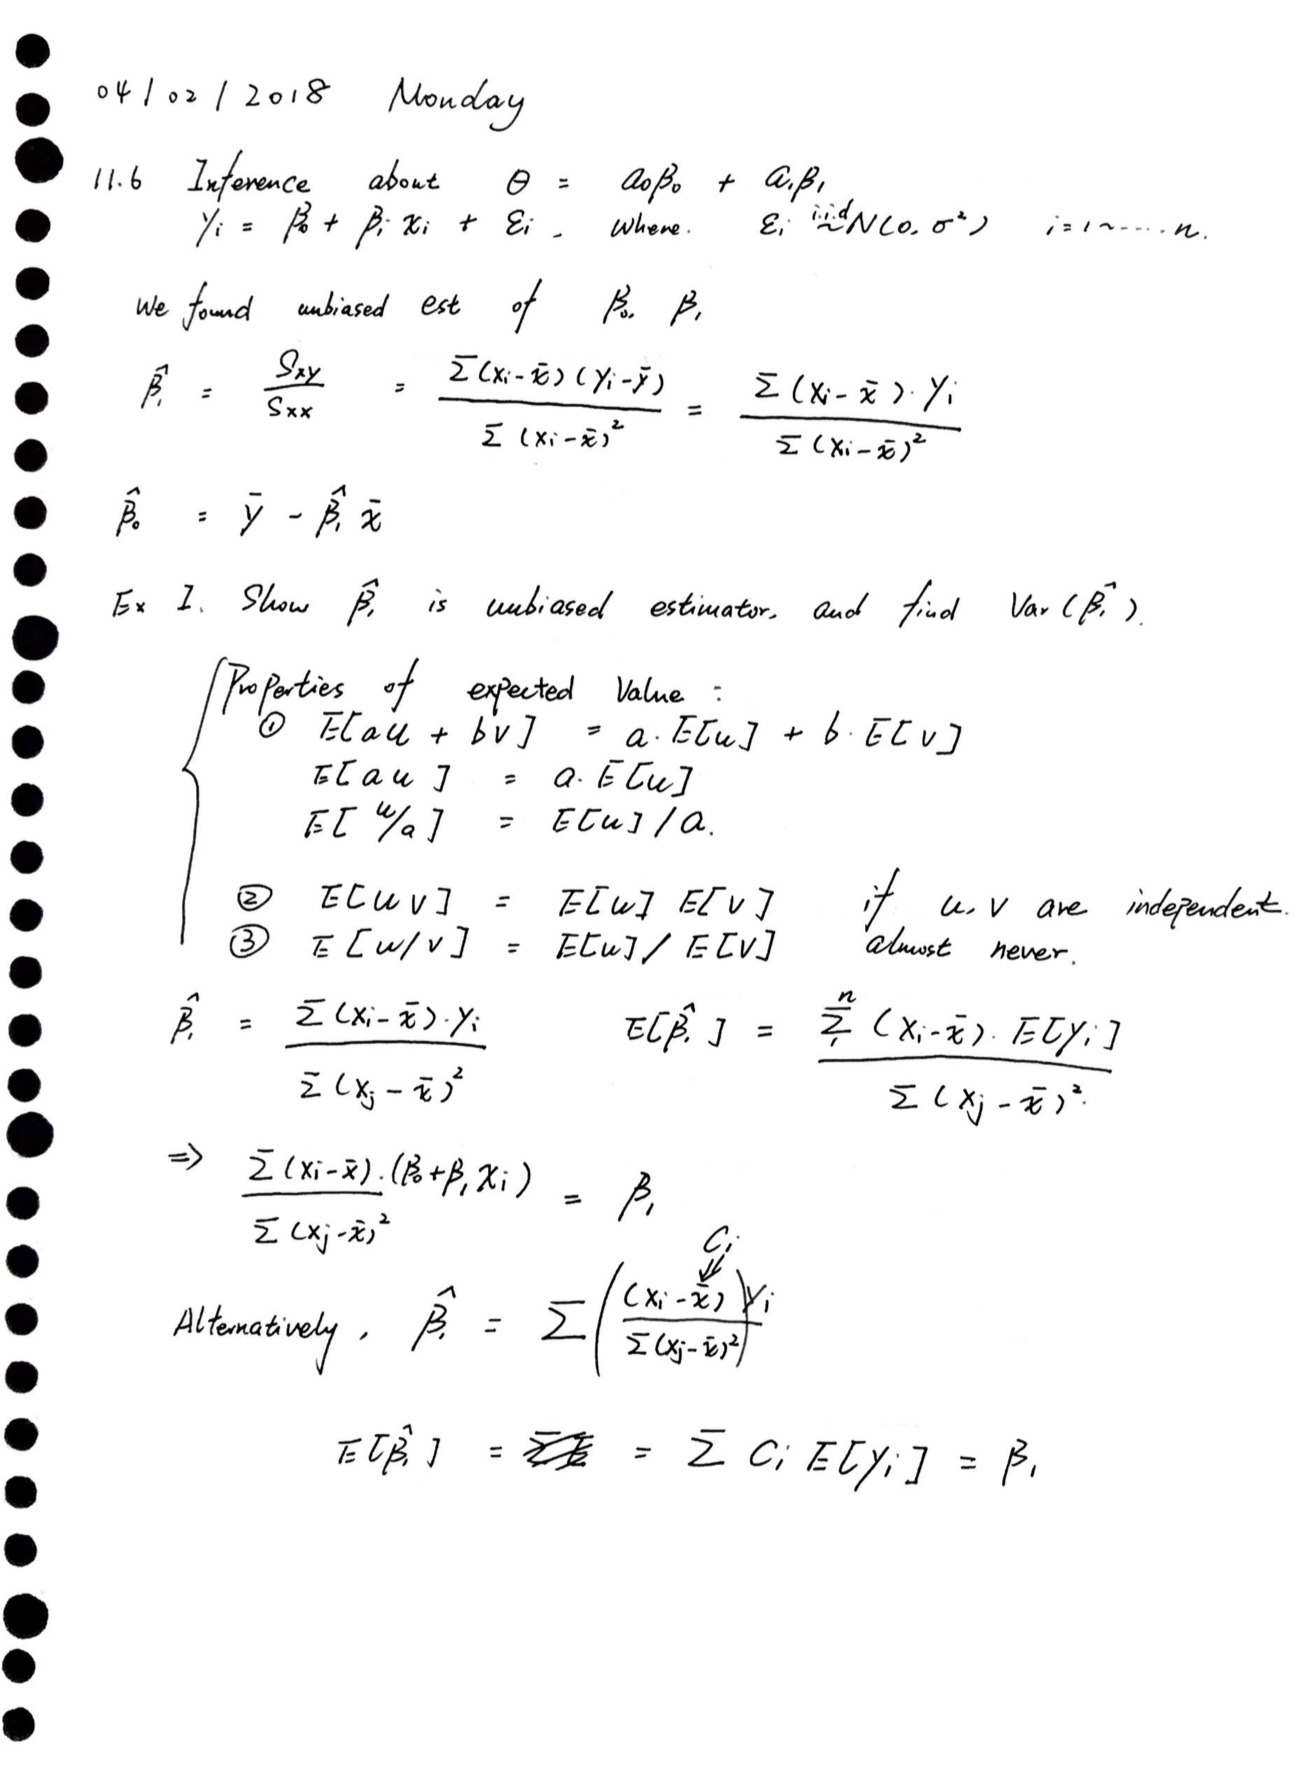 04/02/2018 Monday
11.6 Inference about θ = a₀β₀ + a₁β₁
Yi = β₀ + β₁ xi + εi , where. εi i.i.d ~ N(0, σ²) i=1~.....n.
We found unbiased est of β₀, β₁
β̂₁ = Sxy / Sxx = Σ(xi-x̄)(yi-ȳ) / Σ(xi-x̄)² = Σ(xi-x̄)·Yi / Σ(xi-x̄)²
β̂₀ = ȳ - β̂₁ x̄
Ex 1. Show β̂₁ is unbiased estimator, and find Var(β̂₁).
Properties of expected Value :
① E[au + bv] = a·E[u] + b·E[v]
E[au] = a·E[u]
E[u/a] = E[u]/a.
② E[uv] = E[u] E[v] if u, v are independent.
③ E[u/v] = E[u]/E[v] almost never.
β̂₁ = Σ(xi-x̄)·yi / Σ(xj-x̄)² E[β̂₁] = Σ₁ⁿ(xi-x̄)·E[yi] / Σ(xj-x̄)².
⇒ Σ(xi-x̄)·(β₀+β₁xi) / Σ(xj-x̄)² = β₁
Ci
Alternatively, β̂₁ = Σ((xi-x̄) / Σ(xj-x̄)²) Yi
E[β̂₁] = = Σ Ci E[yi] = β₁